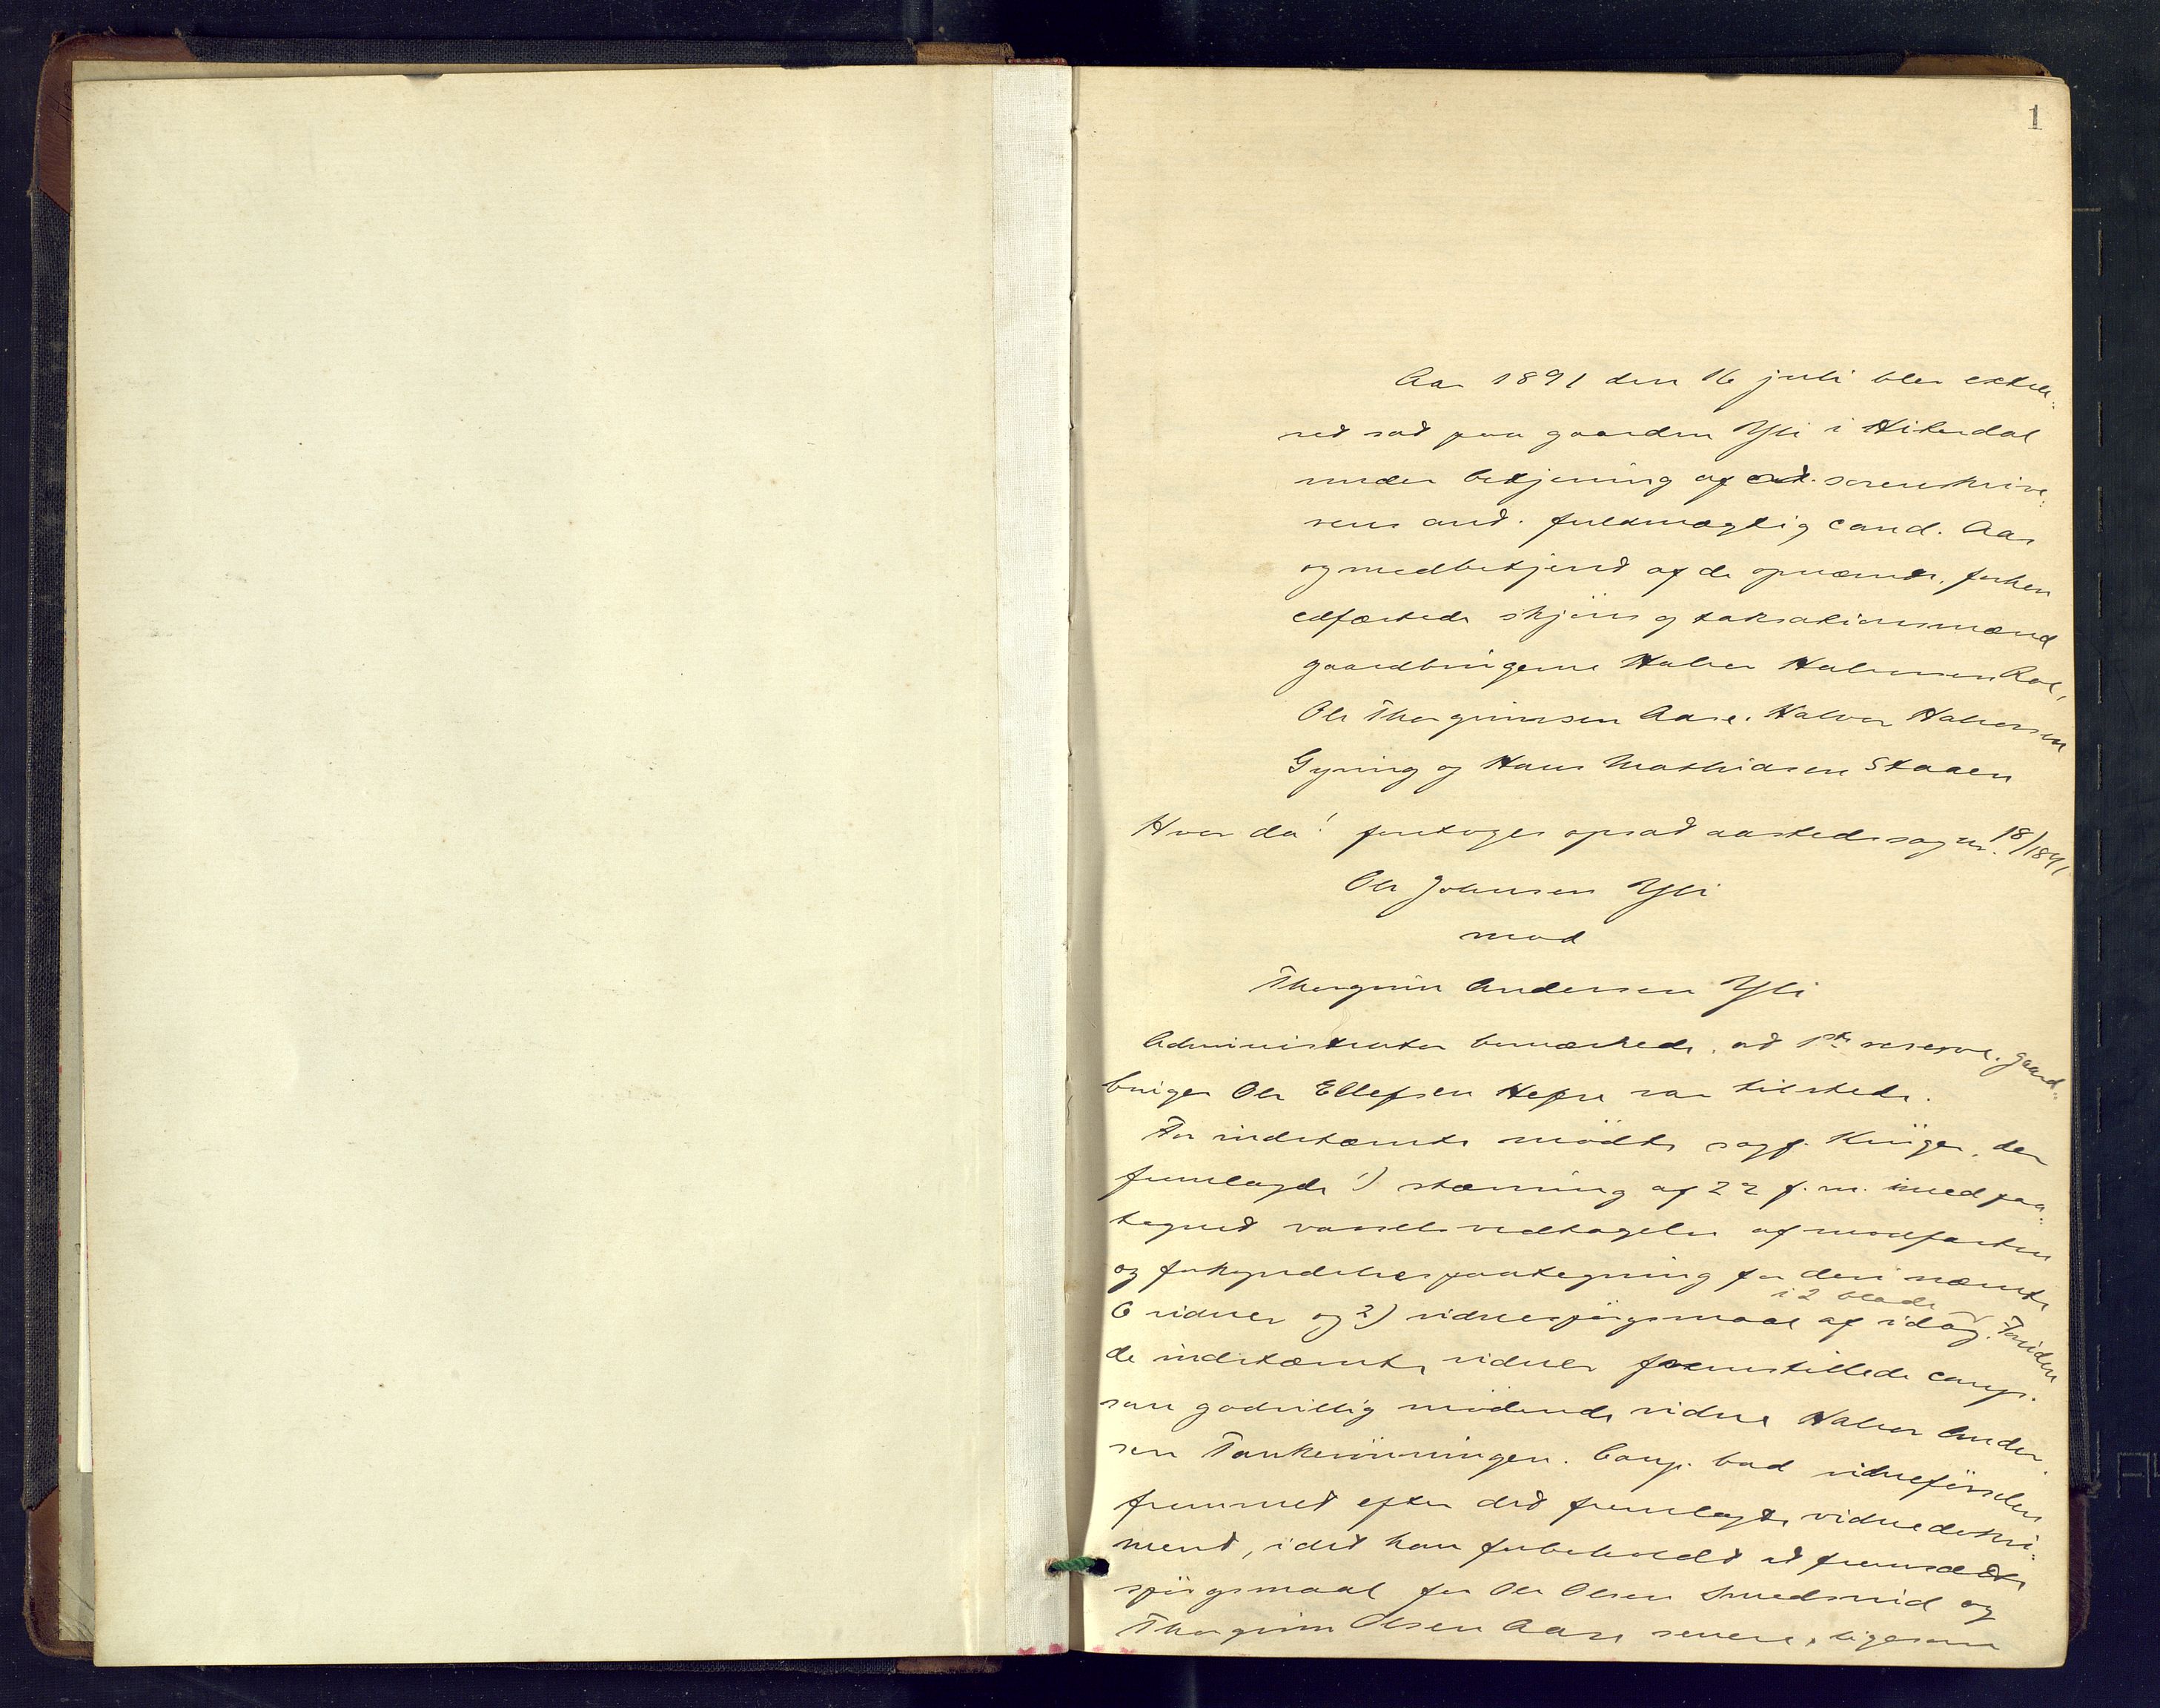 1
Aar 1891 den 16 juli blev extra:
ret sat paa gaarden Yli i Hiterdal
under betjening af ord. sorenskrive:
rens aut. fuldmægtig cand. Aas
og medbetjent af de opnævnte, forhen
edfæstede skjøns og taksationsmænd
gaardbrugerne Halvor Halvorsen Roe,
Ole Thorgrimsen Aase, Halvor Halvorsen
Gyning og Hans Mathiasen Staaen
Hvor da! foretoges opsat aastedssag nr. 18/1891
Ole Johnsen Yli
mod
Thorgrim Andersen Yli
Administrator bemærkede, at 1ste reserve, gaard:
bruger Ole Ellefsen Hefre var tilstede.
For indstævnte mødte sagf. Krüger, der
fremlagde 1) stævning af 22 f. m. med paa:
tegnet varselsvedtagelse af modparten
og forkyndelsespaategning for deri nævnte
6 vidner og 2) vidnespørgsmaal af idag.
i 2 blade
Foruden
de indstævnte vidner fremstillede comp.
som godvillig mødende vidne Halvor Ander:
sen Tankerønningen. Comp. bad vidneførselen
fremmet efter det fremlagte vidnedoku:
ment, idet han forbeholdt at fremsætte
spørgsmaal for Ole Olsen Smedsrud og
Thorgrim Olsen Aase senere, ligesom